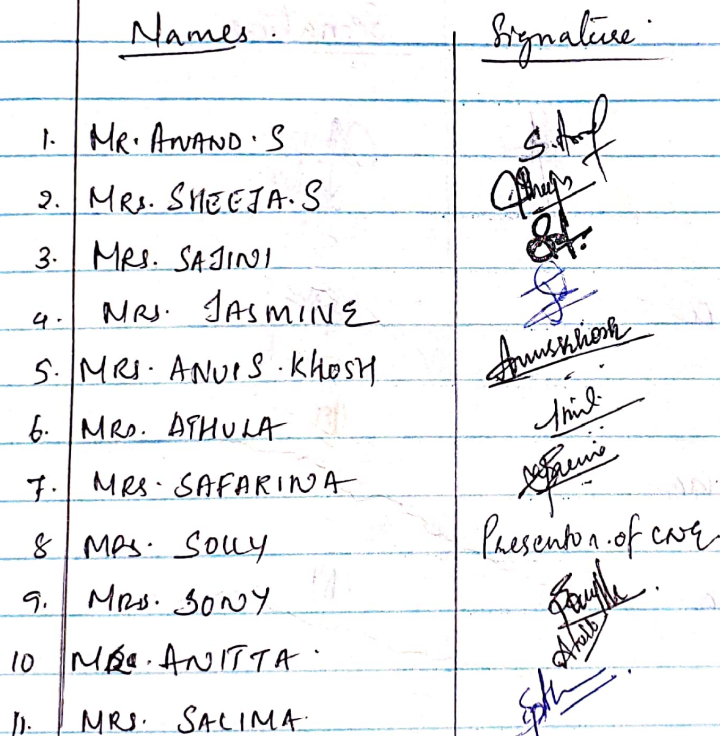 Names. Signature.
1. MR. ANAND. S S.
2. MRS. SHEEJA. S
3. MRS. SAJINI
4. MRS. JASMINE
5. MRS. ANUIS. KHOSH Anuskhosh
6. MRS. ATHULA
7. MRS. SAFARINA
8 MRS. SOLLY Presentor. of CNE
9. MRS. SONY
10 ANITTA.
11. MRS. SALIMA.